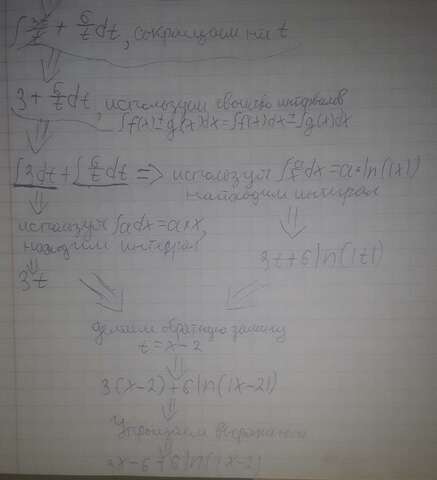 ∫ 3t/t + 6/t dt, сокращаем на t
3 + 6/t dt, используем свойство интегралов
∫f(x)±g(x)dx=∫f(x)dx±∫g(x)dx
∫3dt + ∫6/t dt => используя ∫a/x dx=a*ln(|x|)
находим интеграл
используя ∫adx=a*x,
находим интеграл
3t
3t+6ln(|t|)
делаем обратную замену
t=x-2
3(x-2)+6ln(|x-2|)
Упрощаем выражение
3x-6+6ln(|x-2|)